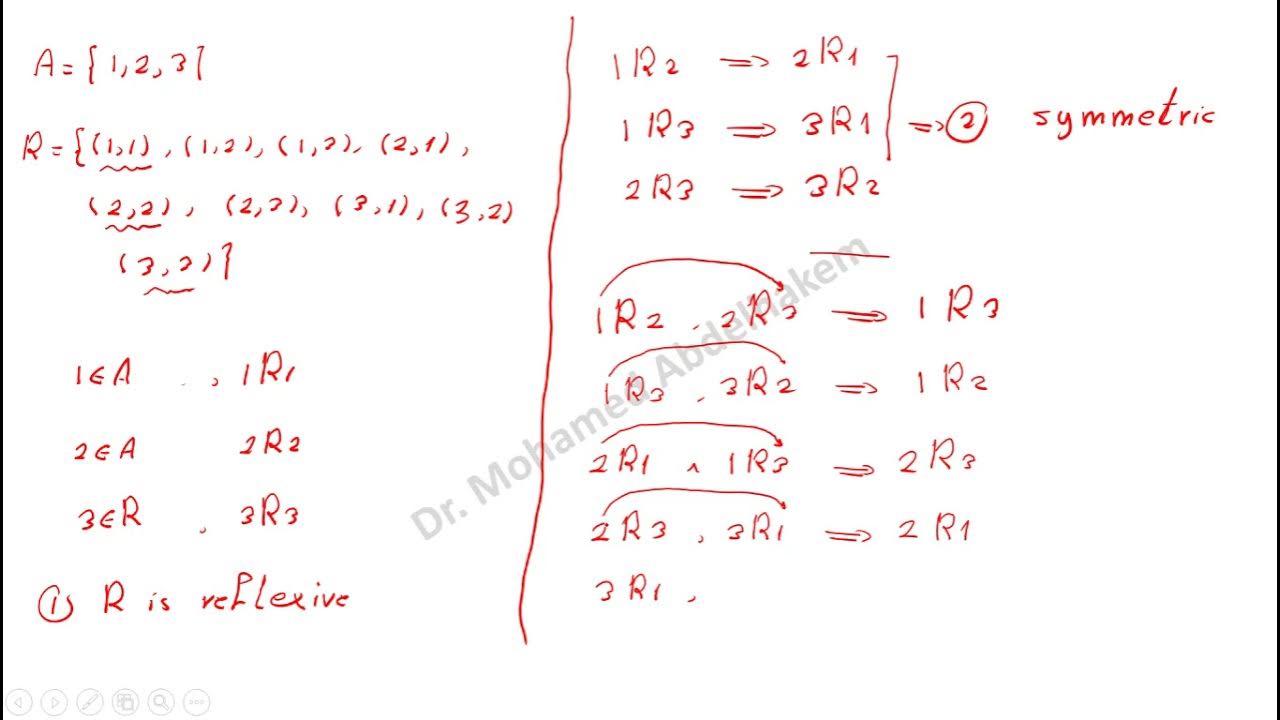 A = {1,2,3}
R = {(1,1), (1,2), (1,3), (2,1),
(2,2), (2,3), (3,1), (3,2)
(3,3)}
1∈A , 1R1
2∈A 2R2
3∈R , 3R3
① R is reflexive
1R2 ⇒ 2R1
1R3 ⇒ 3R1 ⇒ ② symmetric
2R3 ⇒ 3R2
1R2 , 2R3 ⇒ 1R3
1R3 , 3R2 ⇒ 1R2
2R1 ∧ 1R3 ⇒ 2R3
2R3 , 3R1 ⇒ 2R1
3R1 ,
Dr. Mohamed Abdelhakem